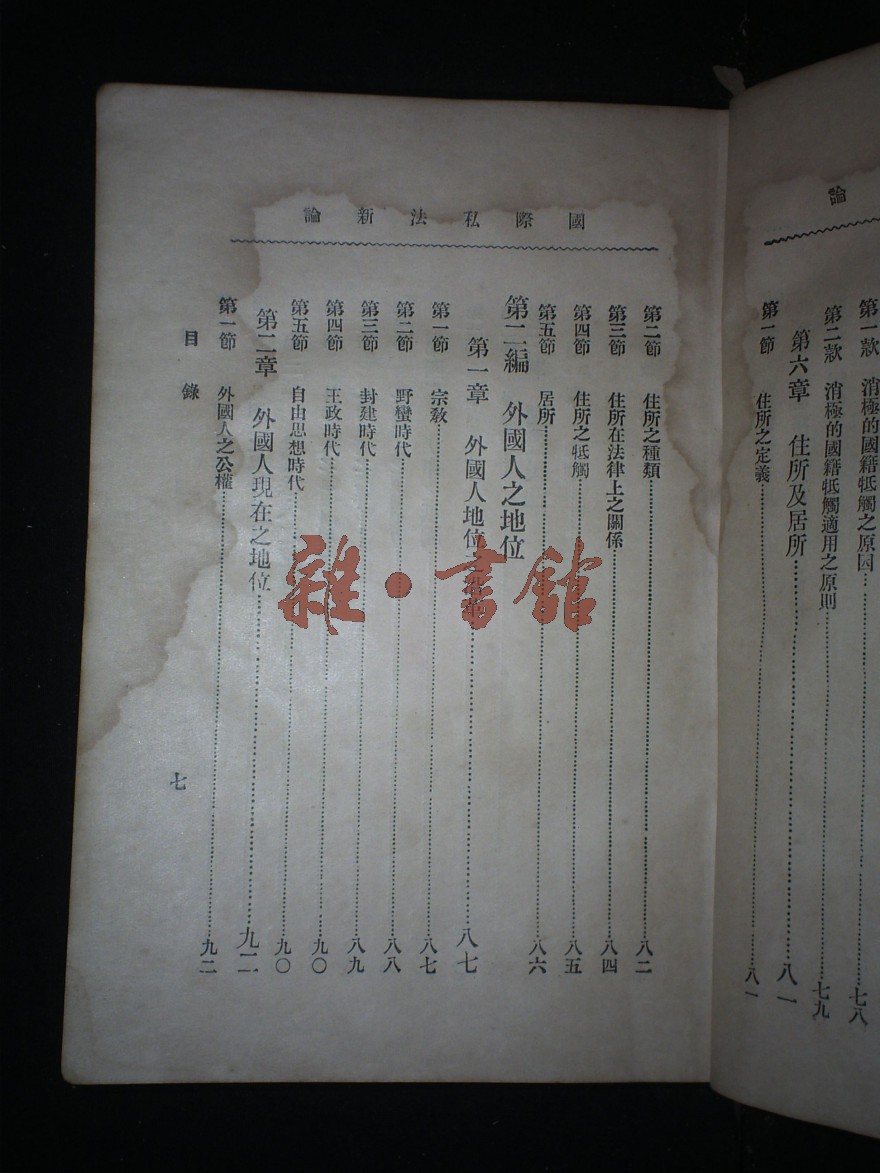 論
第一款 消極的國籍牴觸之原因 七八
第二款 消極的國籍牴觸適用之原則 七九
第六章 住所及居所 八一
第一節 住所之定義 八一
國際私法新論
第二節 住所之種類 八二
第三節 住所在法律上之關係 八四
第四節 住所之牴觸 八五
第五節 居所 八六
第二編 外國人之地位
第一章 外國人地位之沿革 八七
第一節 宗教 八七
第二節 野蠻時代 八八
第三節 封建時代 八九
第四節 王政時代 九〇
第五節 自由思想時代 九〇
第二章 外國人現在之地位 九二
第一節 外國人之公權 九二
目錄
七
雜·書館